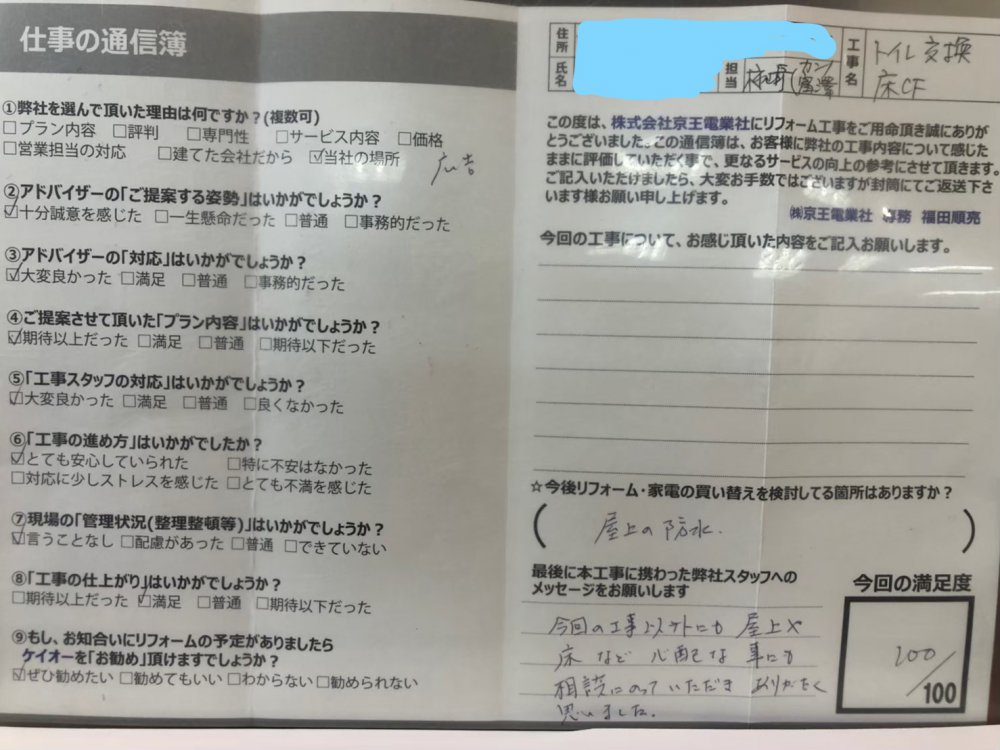 仕事の通信簿
①弊社を選んで頂いた理由は何ですか?(複数可)
□プラン内容 □評判 □専門性 □サービス内容 □価格
□営業担当の対応 □建てた会社だから ☑当社の場所
広告
②アドバイザーの「ご提案する姿勢」はいかがでしょうか?
☑十分誠意を感じた □一生懸命だった □普通 □事務的だった
③アドバイザーの「対応」はいかがでしょうか?
☑大変良かった □満足 □普通 □事務的だった
④ご提案させて頂いた「プラン内容」はいかがでしょうか?
☑期待以上だった □満足 □普通 □期待以下だった
⑤「工事スタッフの対応」はいかがでしょうか?
☑大変良かった □満足 □普通 □良くなかった
⑥「工事の進め方」はいかがでしたか?
☑とても安心していられた □特に不安はなかった
□対応に少しストレスを感じた □とても不満を感じた
⑦現場の「管理状況(整理整頓等)」はいかがでしょうか?
☑言うことなし □配慮があった □普通 □できていない
⑧「工事の仕上がり」はいかがでしょうか?
□期待以上だった ☑満足 □普通 □期待以下だった
⑨もし、お知合いにリフォームの予定がありましたら
ケイオーを「お勧め」頂けますでしょうか?
☑ぜひ勧めたい □勧めてもいい □わからない □勧められない
住所
氏名
担当
工事名
トイレ交換
床CF
この度は、株式会社京王電業社にリフォーム工事をご用命頂き誠にありが
とうございました。この通信簿は、お客様に弊社の工事内容について感じた
ままに評価していただく事で、更なるサービスの向上の参考にさせて頂きます。
ご記入いただけましたら、大変お手数ではございますが封筒にてご返送下さ
います様お願い申し上げます。
㈱京王電業社 専務 福田順亮
今回の工事について、お感じ頂いた内容をご記入お願いします。
☆今後リフォーム・家電の買い替えを検討してる箇所はありますか?
(屋上の防水.)
最後に本工事に携わった弊社スタッフへの
メッセージをお願いします
今回の工事以外にも 屋上や
床など 心配な 事にも
相談にのっていただき ありがたく
思いました.
今回の満足度
100/100